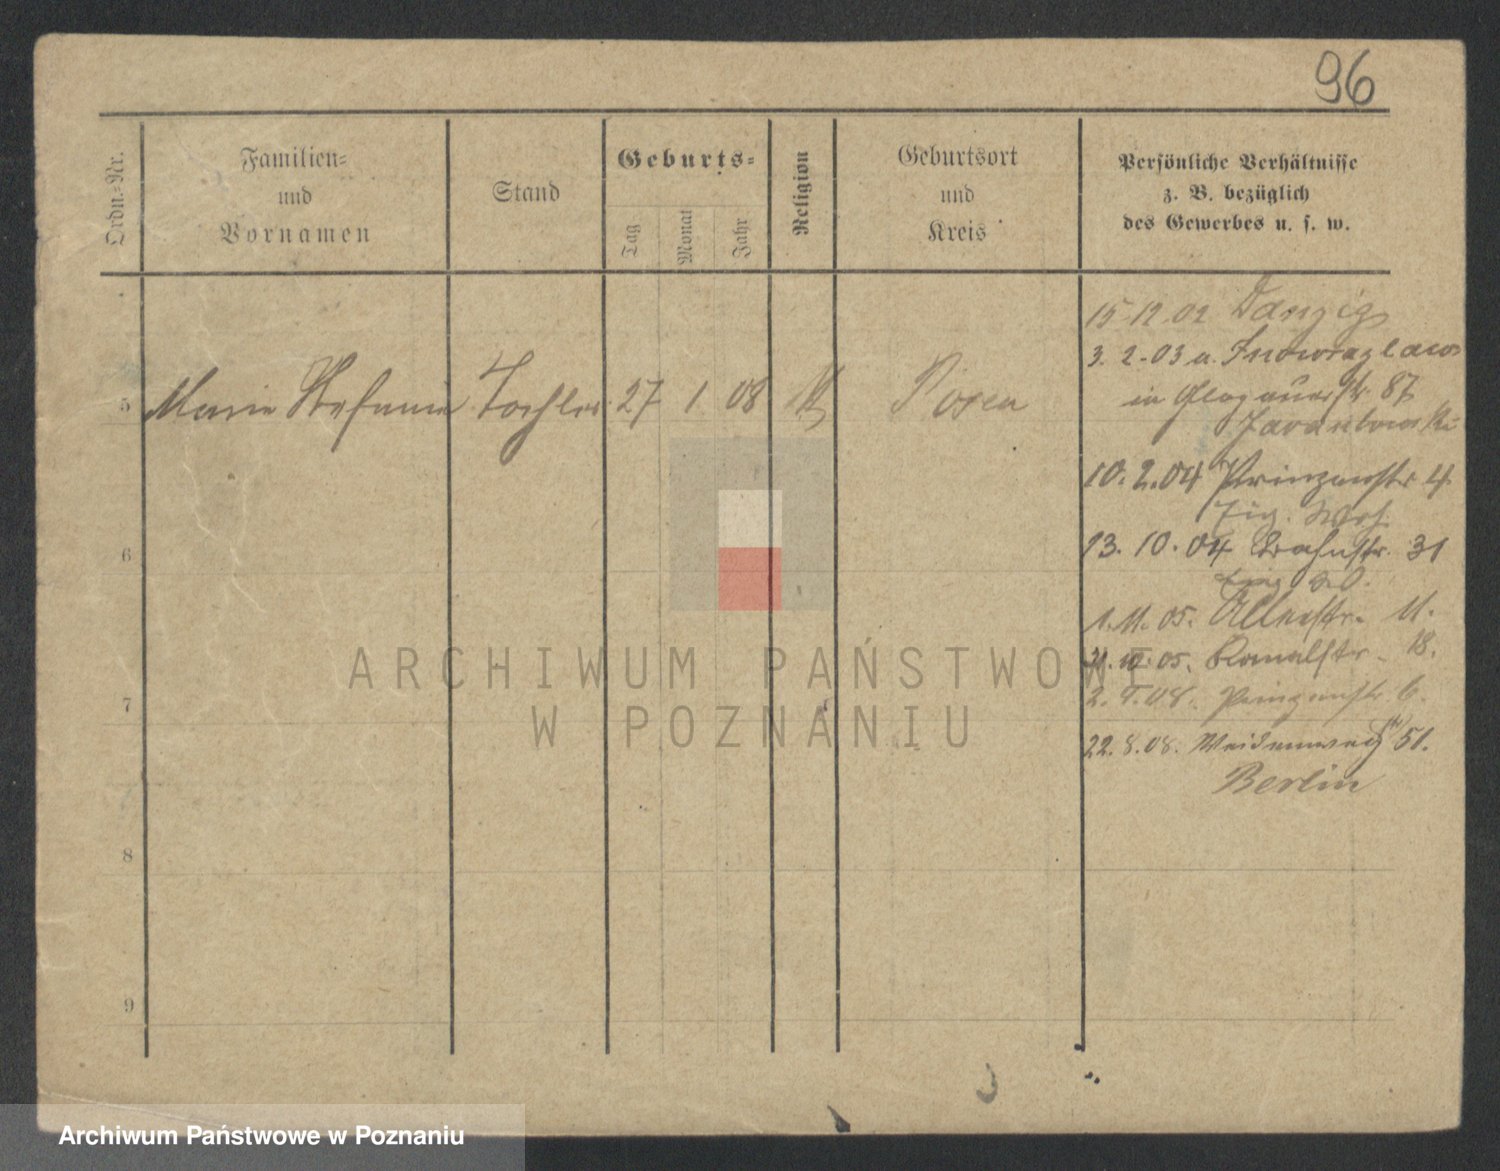 96
Ordn.-Nr.
Familien-
und
Vornamen
Stand
Geburts-
Tag
Monat
Jahr
Religion
Geburtsort
und
Kreis
Persönliche Verhältnisse
z. B. bezüglich
des Gewerbes u. s. w.
15 12 02 Danzig
3. 2. 03 a. Inowrazlaw
5 Marie Stefanie Tochter 27 1 08 Posen
in Glogauerstr 87
10. 2. 04 Prinzenstr 4
13. 10. 04 Bahnstr. 31
6
1. 11. 05. 11.
05. Kanalstr. 18.
7
08. Prinzenstr 6.
22. 8. 08. Weidenweg 51.
Berlin
8
9
ARCHIWUM PAŃSTWOWE
W POZNANIU
Archiwum Państwowe w Poznaniu